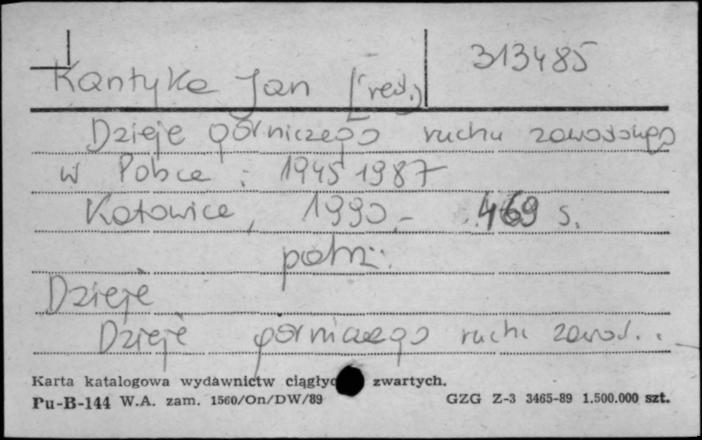 313485
Kantyka Jan (red.)
Dzieje górniczego ruchu zawodowego
w Polsce : 1945 1987
Katowice, 1990.- 469 s.
patrz:
Dzieje
Dzieje górniczego ruchu zawod...
Karta katalogowa wydawnictw ciągłyc zwartych.
Pu-B-144 W.A. zam. 1560/On/DW/89 GZG Z-3 3465-89 1.500.000 szt.